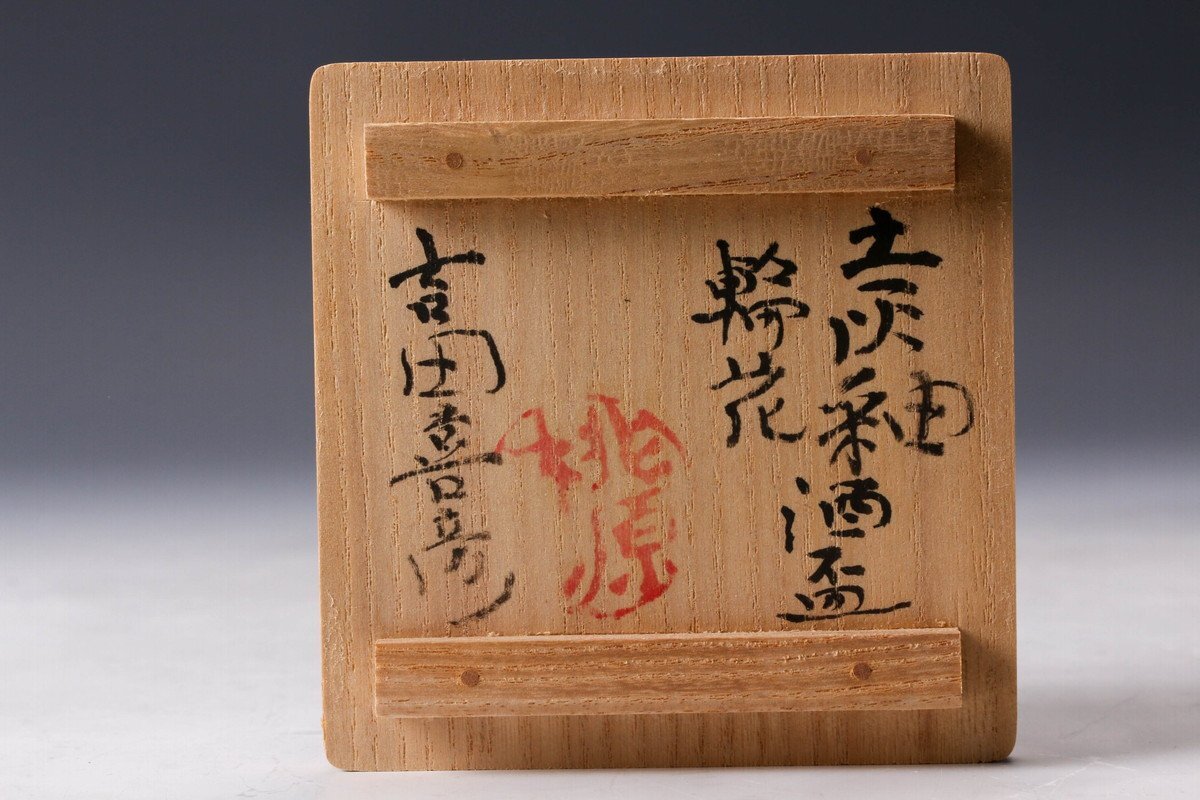 土灰釉酒盃
輪花
吉田喜彦